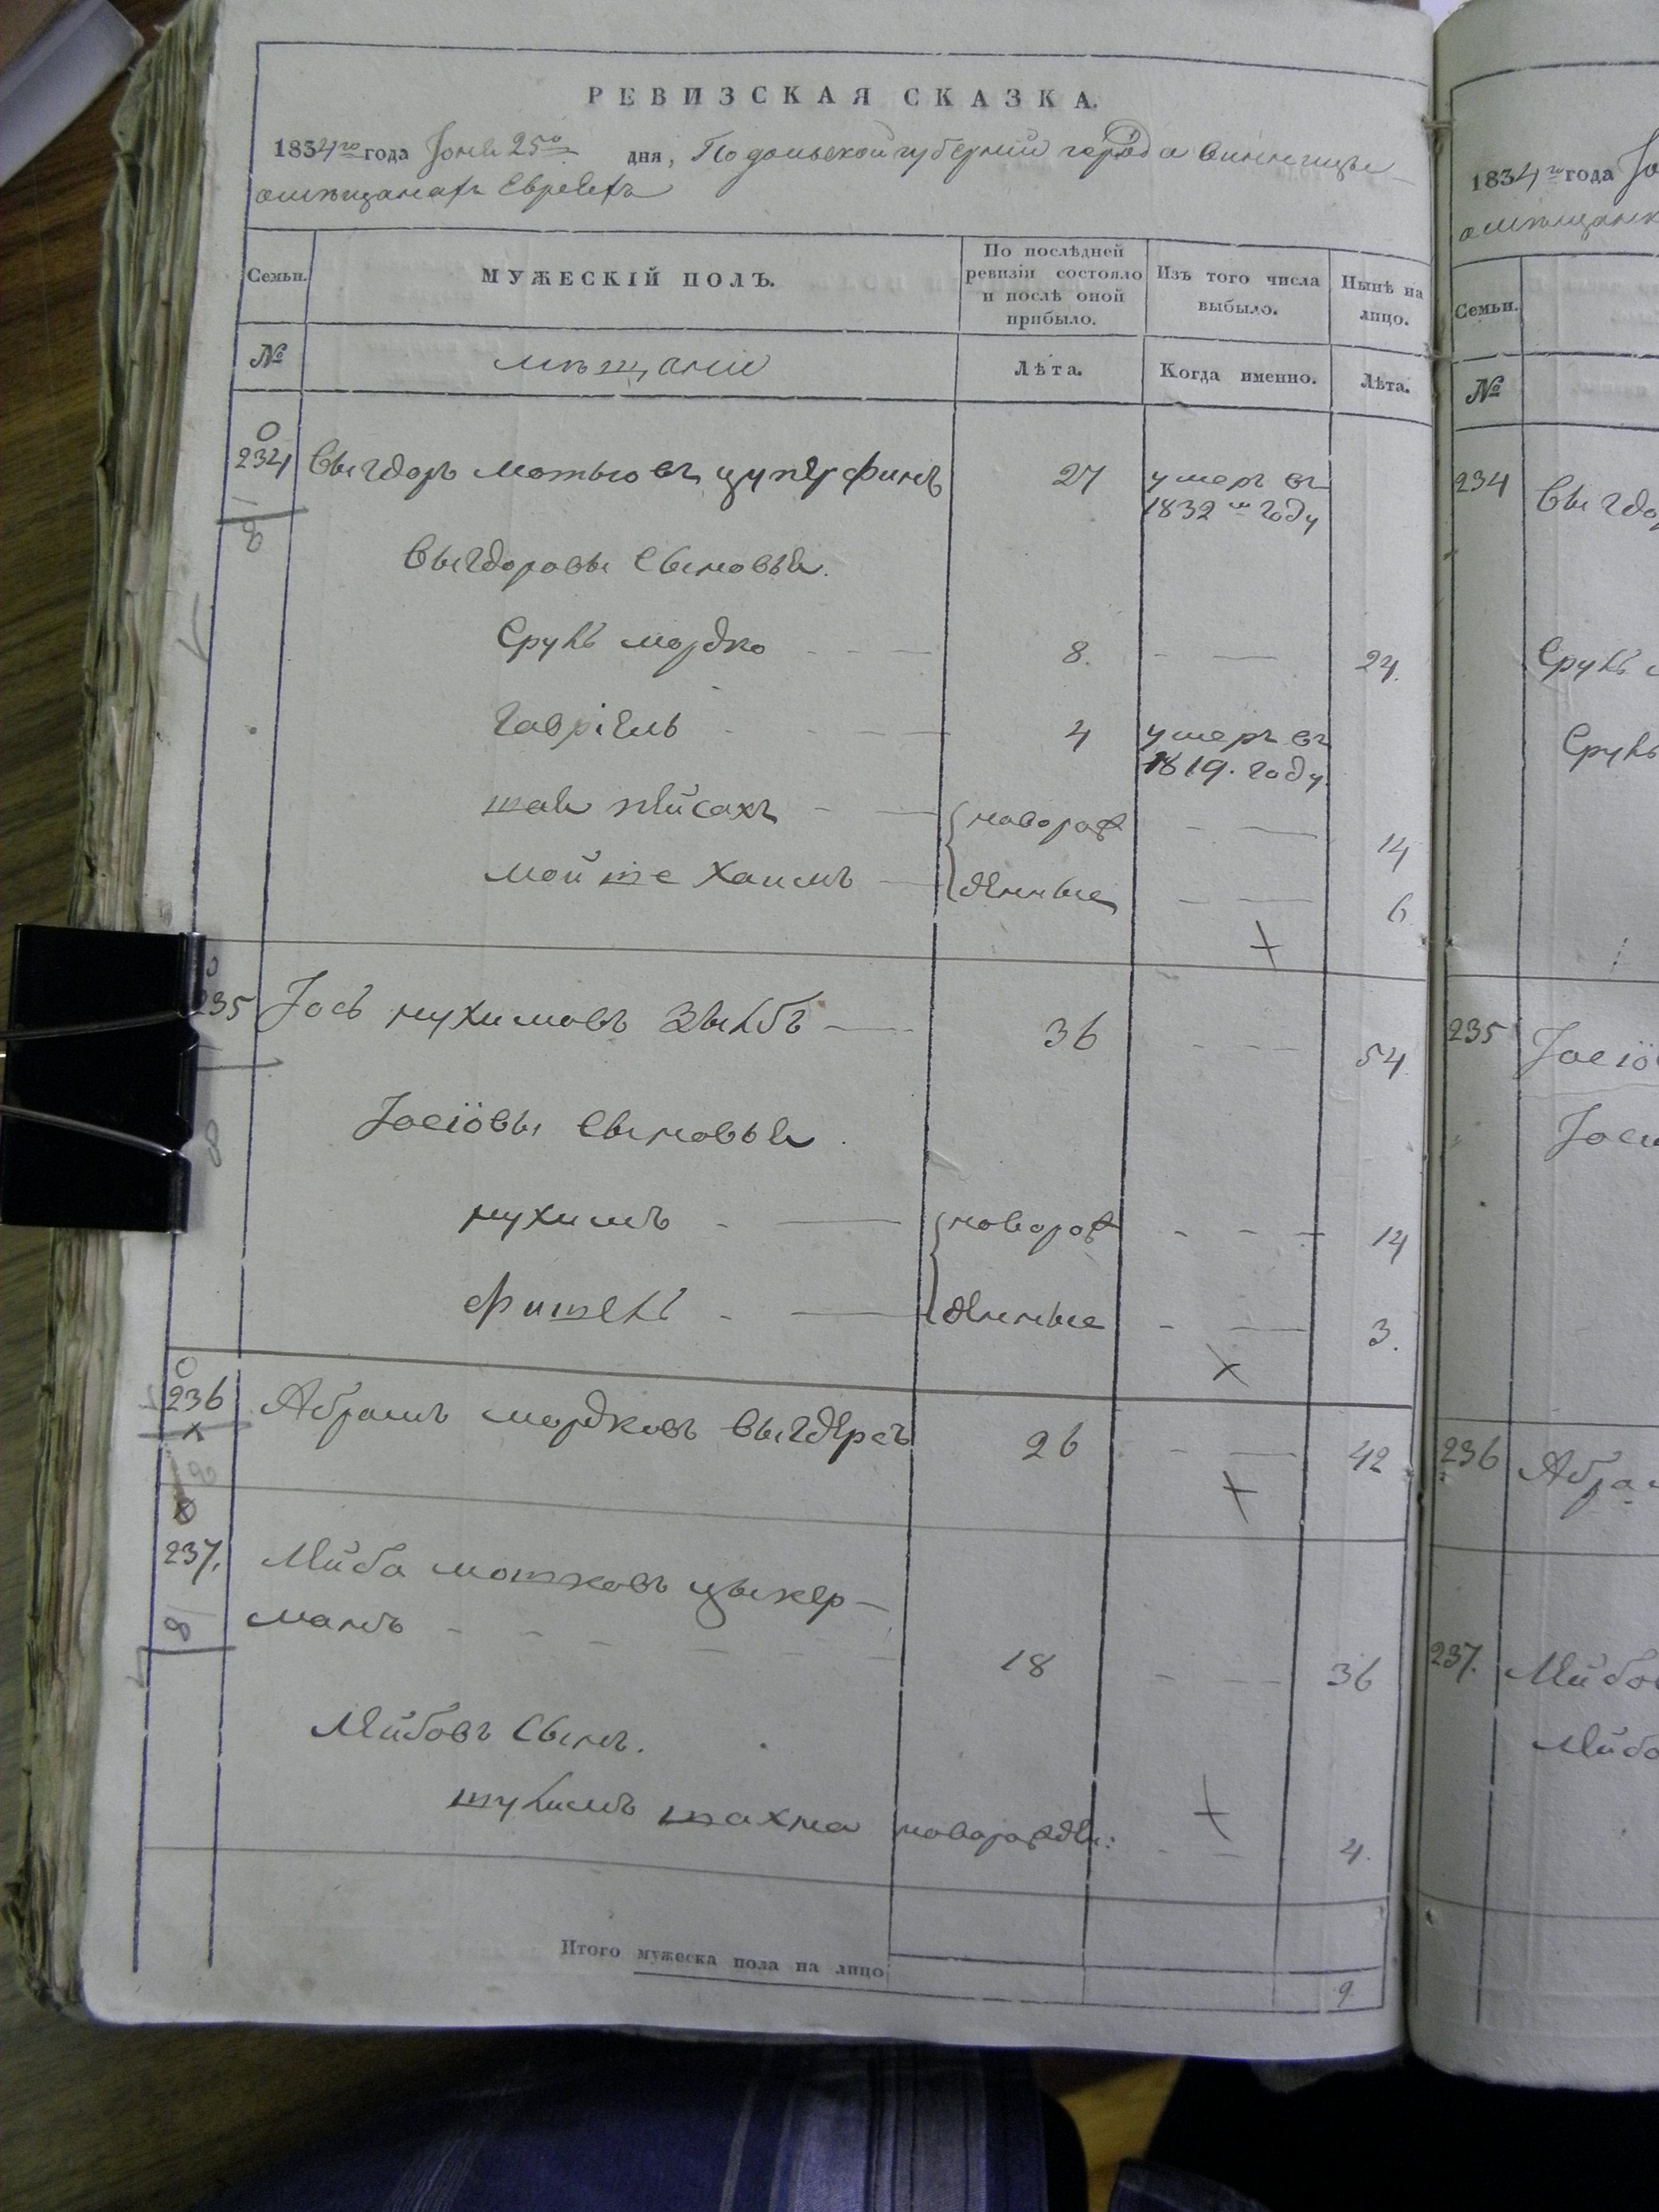 РЕВИЗСКАЯ СКАЗКА.
1834го года Іоня 25го дня, Подольской губерніи города Винницы
о мѣщанахъ Евреяхъ
Семьи. МУЖЕСКІЙ ПОЛЪ. По послѣдней ревизіи состояло и послѣ оной прибыло. Изъ того числа выбыло. Нынѣ на лицо.
№ мѣщане Лѣта. Когда именно. Лѣта.
234 Выгдоръ Мотьовъ 27 умеръ въ
1832м году
Выгдоровы Сыновья.
Срулъ мордко 8. 24.
Гавріель 4 умеръ въ
1819. году
шая пейсахъ новорож 14
мойше хаимъ денные 6
235 Іось нухимовъ 36 54
Іосіовы Сыновья.
нухимъ новорож 14
фишель денные 3.
236 Абрамъ мордковъ 26 42
237. Лейба мошковъ цыкер-
манъ 18 36
Лейбовъ Сынъ.
шулимъ шахна новорожден: 4.
Итого мужеска пола на лицо 9
1834го года
Семьи.
№
234
Срулъ
235
236
237.